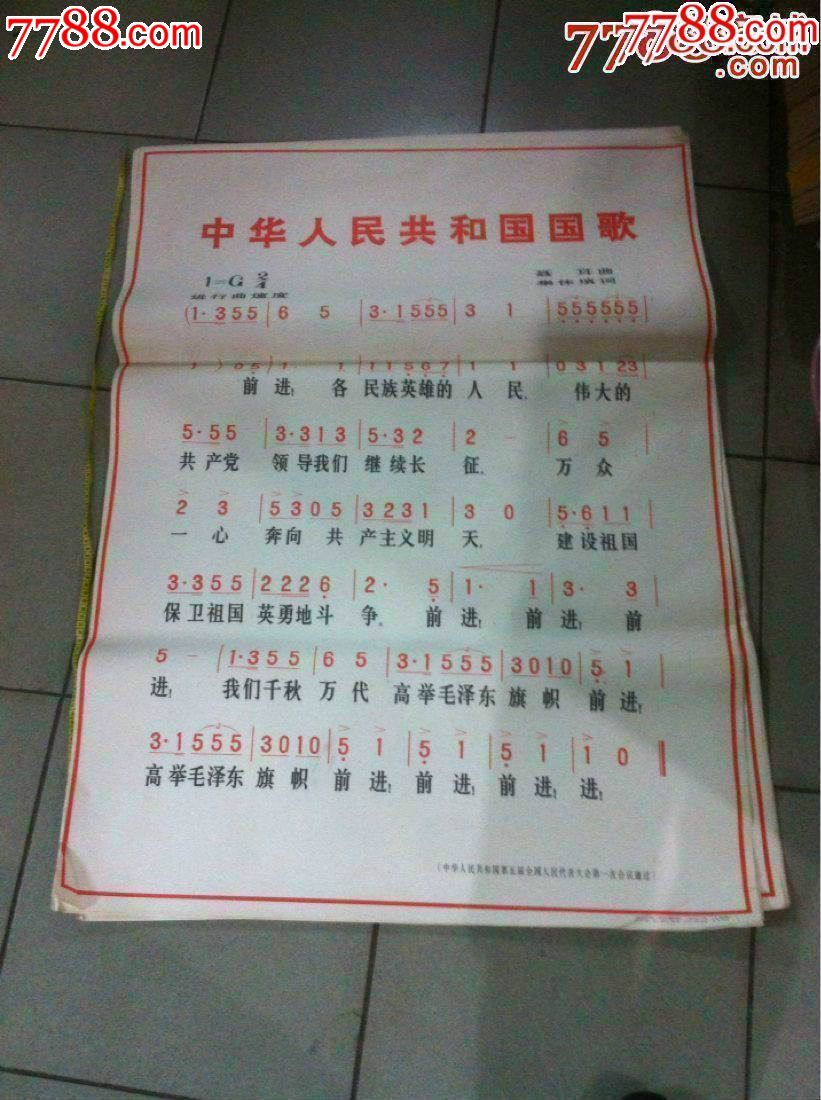 7788.com
7788.com
7788.com
中华人民共和国国歌
1=G 2/4
聂耳曲
进行曲速度
集体填词
(1·355|65|3·1555|31|555555|
1)05|1·1|11567|11|03123
前进!各民族英雄的人民,伟大的
5·55|3·313|5·32|2-|65|
共产党领导我们继续长征,万众
23|5305|3231|30|5·611|
一心奔向共产主义明天,建设祖国
3·355|2226|2·5|1·1|3·3|
保卫祖国英勇地斗争。前进!前进!前
5-|1·355|65|3·1555|3010|51|
进!我们千秋万代高举毛泽东旗帜前进!
3·1555|3010|51|51|51|10‖
高举毛泽东旗帜前进!前进!前进!进!
(中华人民共和国第五届全国人民代表大会第一次会议通过)